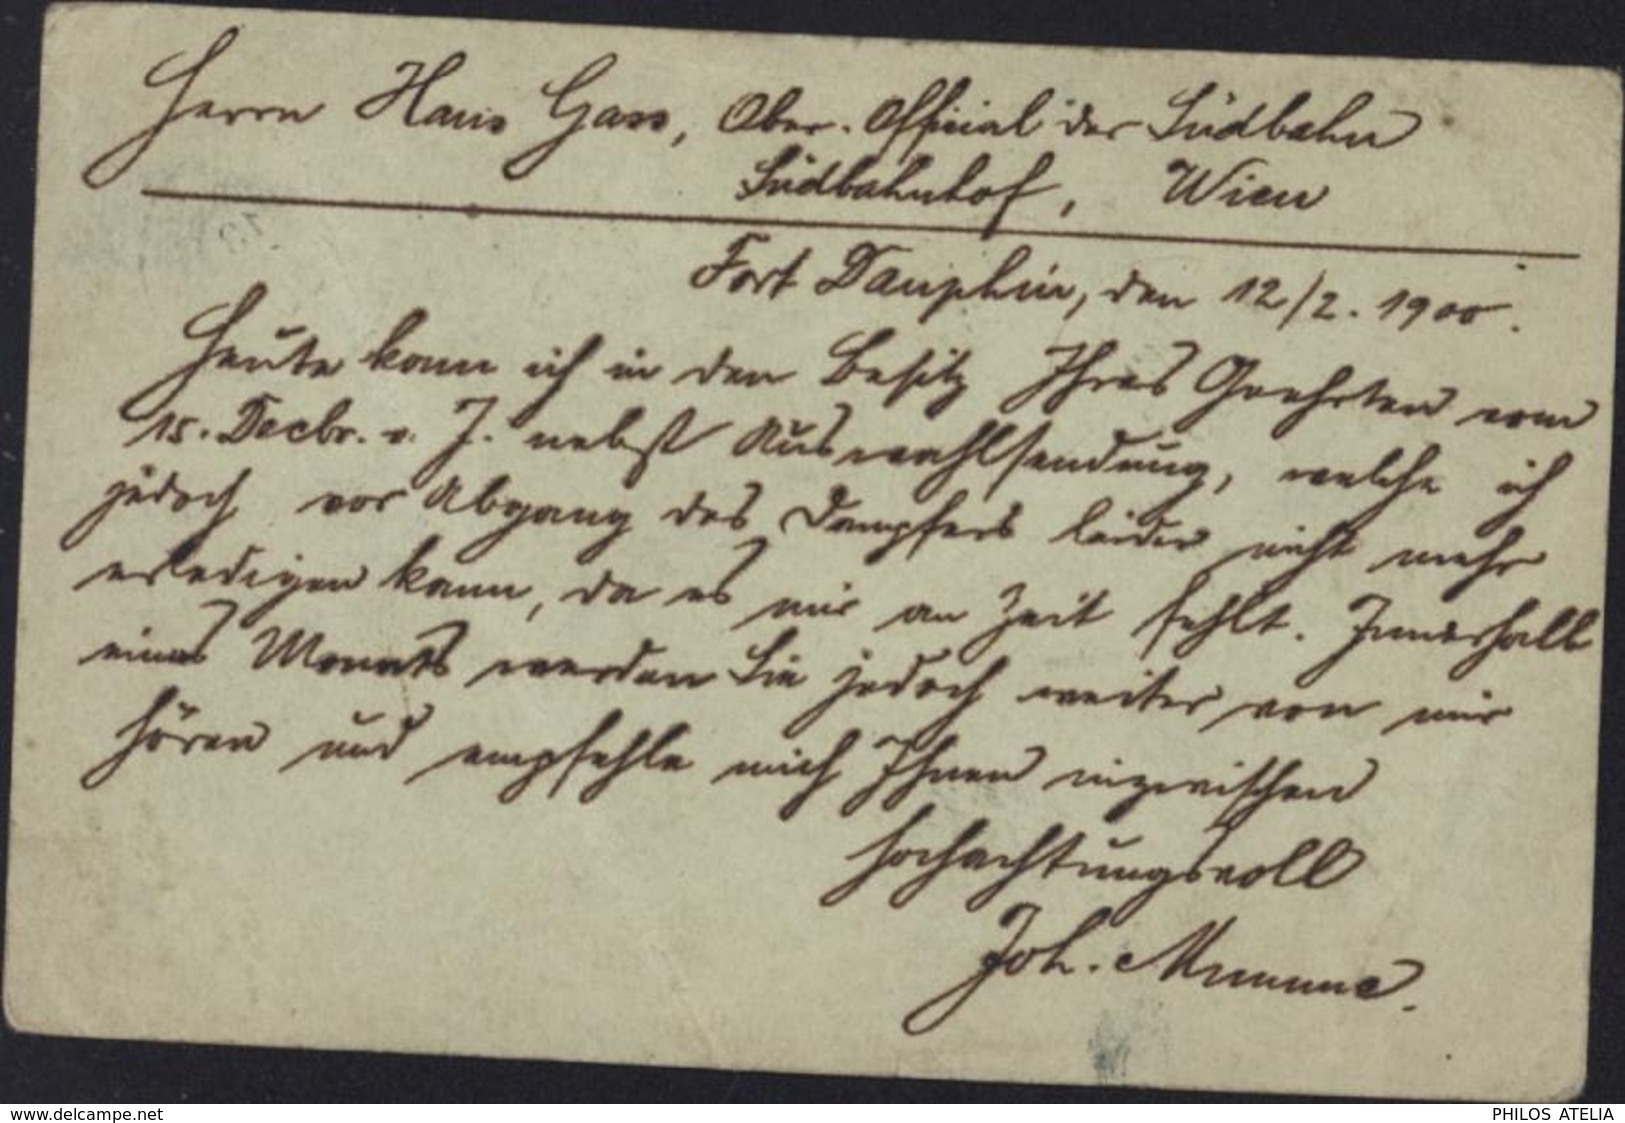 Herrn Hans Gass, Ober-Official der Südbahn
Südbahnhof, Wien
Fort Dauphin, den 12/2. 1900.
Heute kam ich in den Besitz Ihres Geehrten vom
15. Decbr. v. J. nebst Auswahlsendung, welche ich
jedoch vor Abgang des Dampfers leider nicht mehr
erledigen kann, da es mir an Zeit fehlt. Innerhalb
eines Monats werden Sie jedoch weiter von mir
hören und empfehle mich Ihnen inzwischen
hochachtungsvoll
Joh. Mumme.
www.delcampe.net
PHILOS ATELIA